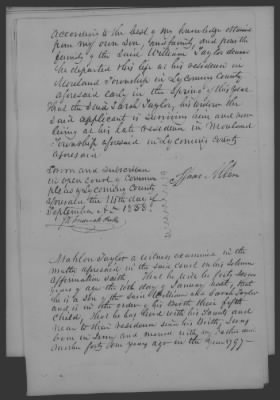 according to the best of my knowledge obtained
from my own son & his family, and from the
family of the said William Taylor deceased
he departed this life at his residence in
Moreland Township in Lycoming County
aforesaid early in the Spring of this year
that the said Sarah Taylor, his widow the
said applicant is surviving him and now
living at his late residence in Moreland
Township aforesaid in Lycoming County
aforesaid
Sworn and subscribed
in open court of Common
pleas of Lycoming County
aforesaid the 11th day of
September A.D. 1838
Isaac Allen
Mahlon Taylor a witness examined in the
matter aforesaid in the said court on his solemn
affirmation saith That he will be forty seven
years of age the 10th day of January next, that
he is a son of the said William & Sarah Taylor
and is in the order of his Birth their fifth
child, that he has lived with his family and
near to their residence since his Birth, being
born in and moved with my father and
mother forty one years ago in the year 1797